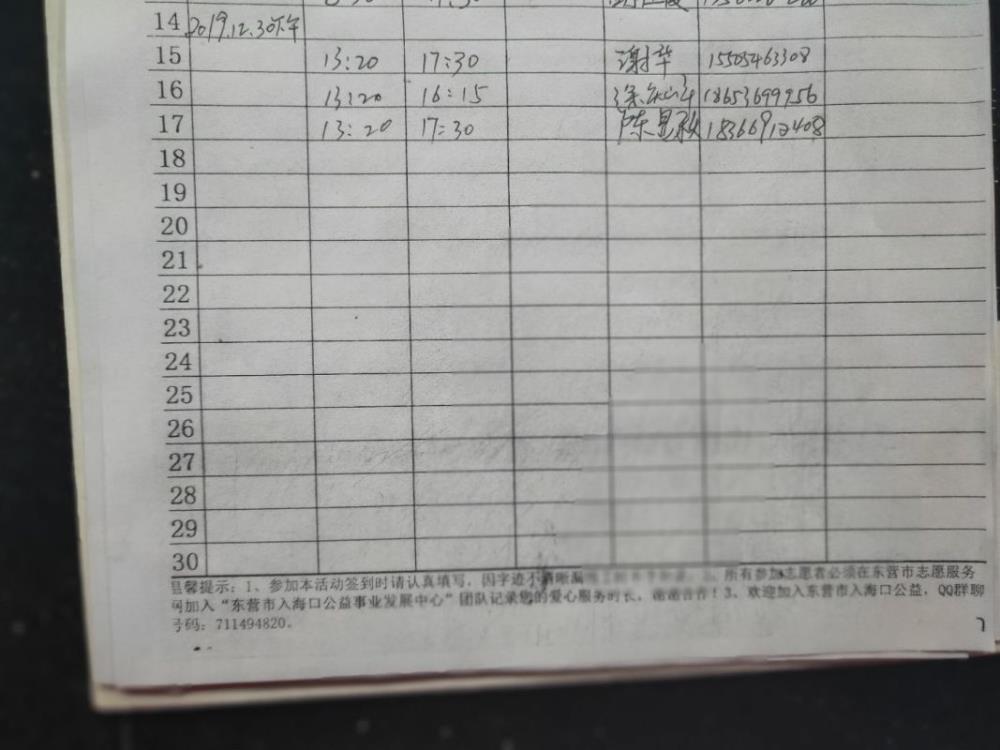 14 2019.12.30下午
15 13:20 17:30 谢华 15505463308
16 13:20 16:15 18653699956
17 13:20 17:30 陈显秋 18366912408
18
19
20
21
22
23
24
25
26
27
28
29
30
温馨提示：1、参加本活动签到时请认真填写，因字迹不清晰漏 所有参加志愿者必须在东营市志愿服务
网加入“东营市入海口公益事业发展中心”团队记录您的爱心服务时长，谢谢合作！3、欢迎加入东营市入海口公益，QQ群聊
号码：711494820。
7